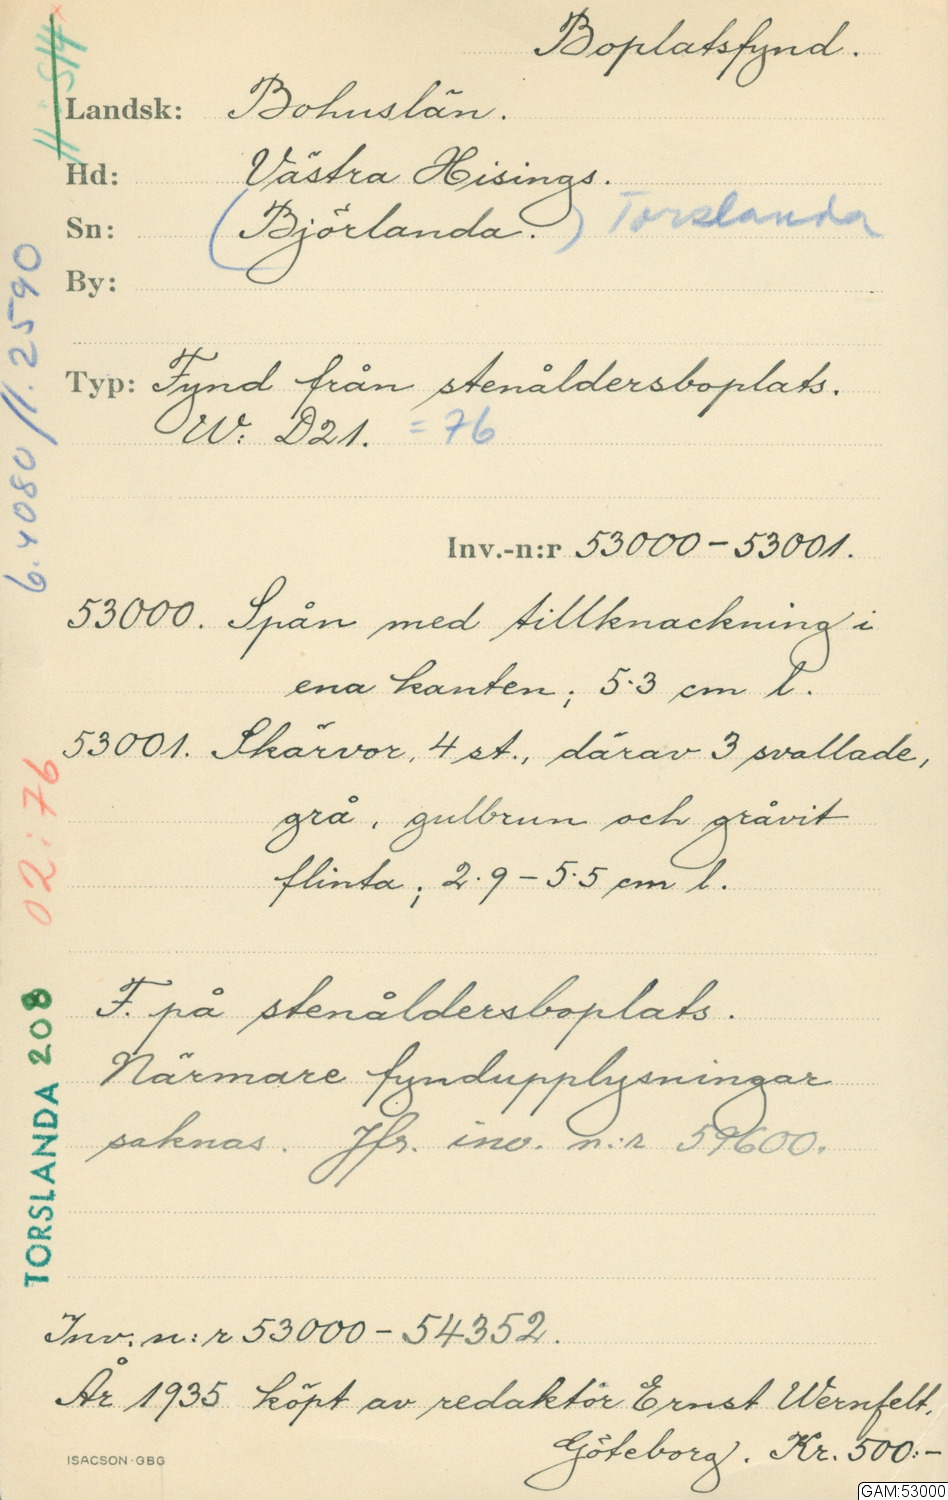 Boplatsfynd.
Landsk: Bohuslän.
Hd: Västra Hisings.
Sn: (Björlanda.) Torslanda
By:
Typ: Fynd från stenåldersboplats.
W: D21. = 76
Inv.-n:r 53000-53001.
53000. Spån med tillknackning i
ena kanten; 5.3 cm l.
53001. Skärvor, 4 st., därav 3 svallade,
grå, gulbrun och gråvit
flinta; 2.9-5.5 cm l.
F. på stenåldersboplats.
Närmare fyndupplysningar
saknas. Jfr. inv. n:r 59600.
Inv. n:r 53000-54352.
År 1935 köpt av redaktör Ernst Wernfelt,
Göteborg. Kr. 500:-
ISACSON·GBG
GAM:53000
TORSLANDA 208
02:76
6.4080 //.2590